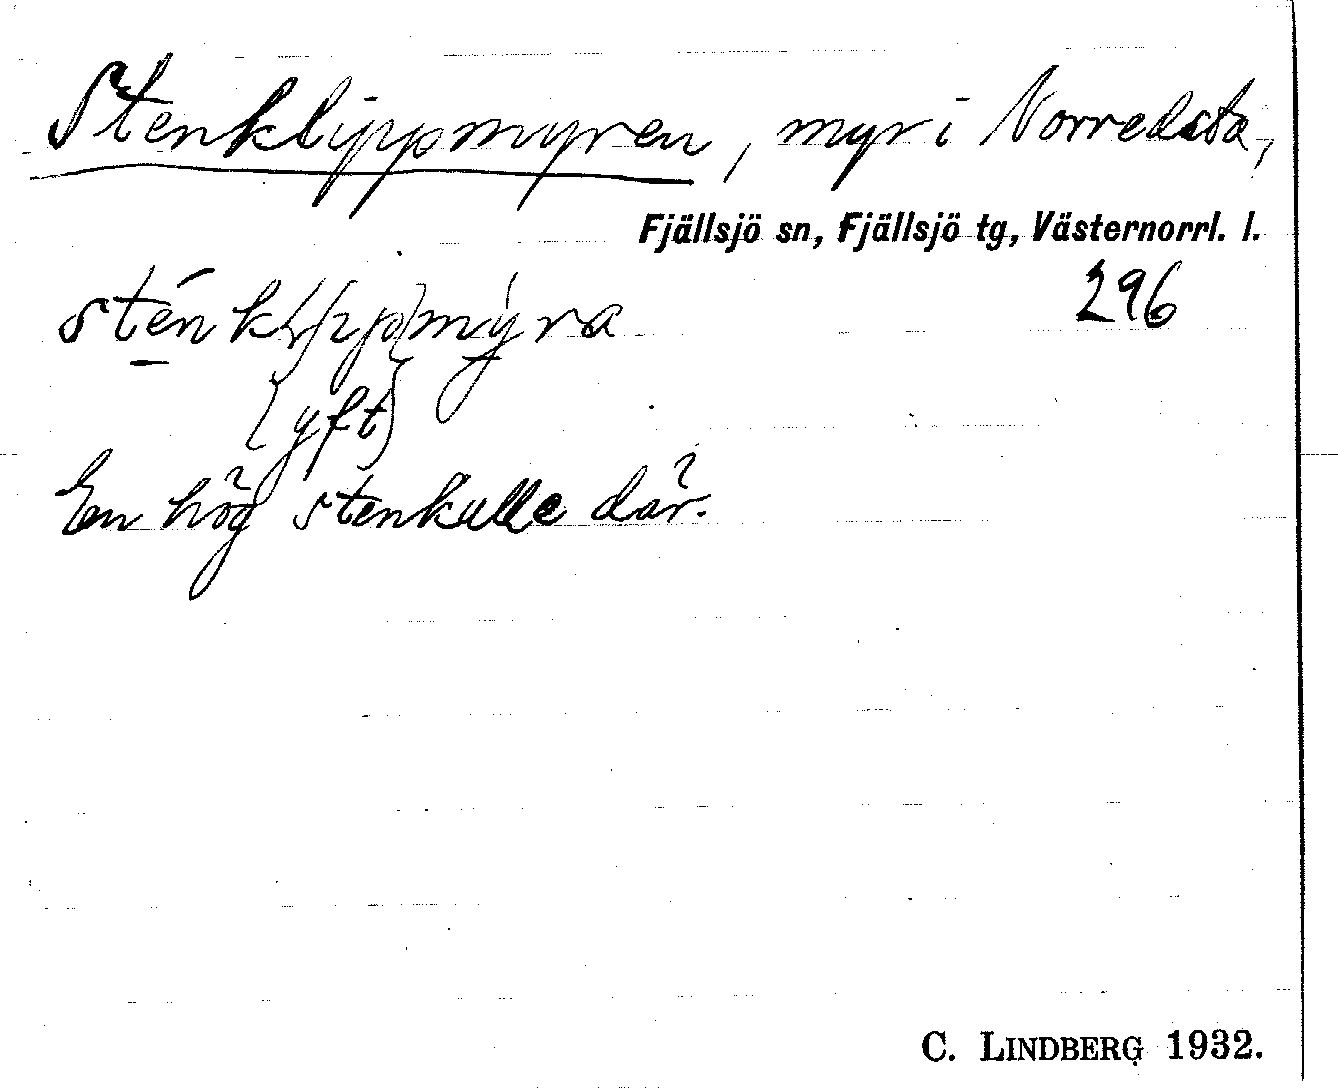 Stenklippmyren, myr i Norredsta,
Fjällsjö sn, Fjällsjö tg, Västernorrl. l.
296
{yft}
En hög stenkulle där.
C. LINDBERG 1932.